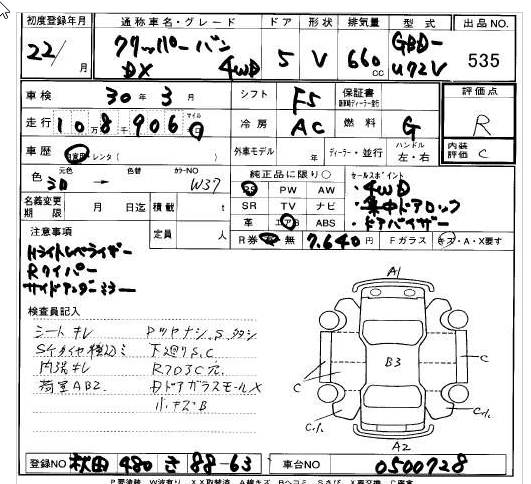 初度登録年月 通称車名・グレード ドア 形状 排気量 型式 出品NO.
22/ 月 クリッパーバン DX 4WD 5 V 660 cc GBD-U72V 535
車検 30年 3月 シフト F5 保証書 評価点
走行 108906 マイル 冷房 AC 燃料 G R
車歴 自家用 レンタ ( ) 外車モデル 年 ディーラー・並行 ハンドル 左・右 内装評価 C
色 元色 シロ → 色替 カラーNO W37 純正品に限り○ セールスポイント
PS PW AW ・4WD
名義変更期限 月 日迄 積載 t SR TV ナビ ・集中ドアロック
定員 人 革 エアB ABS ・ドアバイザー
注意事項 R券 有 無 7.640円 Fガラス キズ・A・X要す
Hライトレベライザー
Rワイパー
サイドアンダーミラー
検査員記入
シートキレ PツヤナシS
Sケタイヤ積込ミ 下廻りS.C
内張キレ R703C穴
荷室AB2 ドアガラスモールX
小キズB
A1
B3
C
C
A2
登録NO 秋田 480 さ 88-63 車台NO 0500728